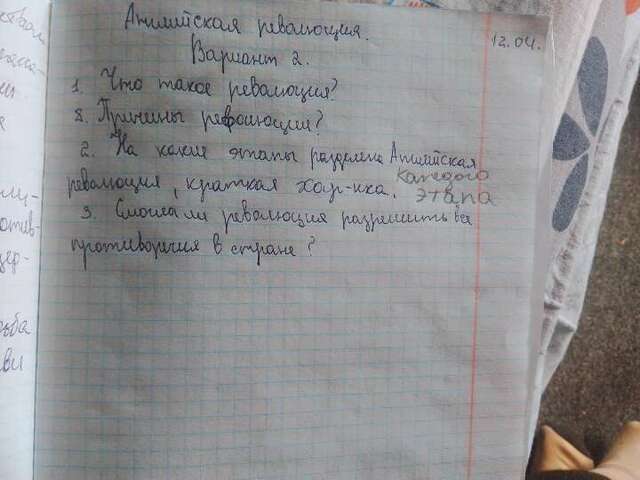 Английская революция.
12.04.
Вариант 2.
1. Что такое революция?
2. Причины революции?
2. На какие этапы разделена Английская
революция, краткая хар-ика. каждого
этапа
3. Смогла ли революция разрешить все
противоречия в стране?